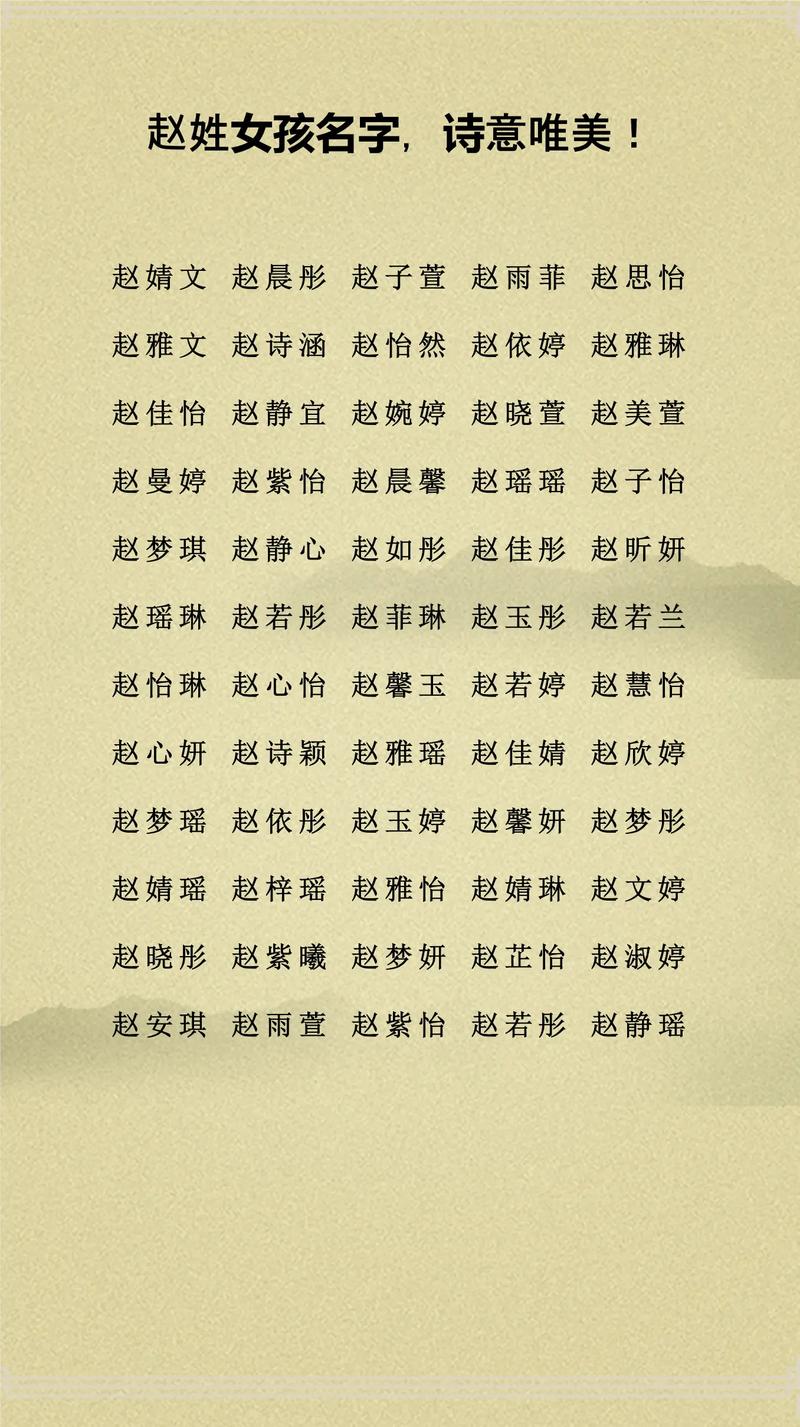 赵姓女孩名字，诗意唯美！
赵婧文 赵晨彤 赵子萱 赵雨菲 赵思怡
赵雅文 赵诗涵 赵怡然 赵依婷 赵雅琳
赵佳怡 赵静宜 赵婉婷 赵晓萱 赵美萱
赵曼婷 赵紫怡 赵晨馨 赵瑶瑶 赵子怡
赵梦琪 赵静心 赵如彤 赵佳彤 赵昕妍
赵瑶琳 赵若彤 赵菲琳 赵玉彤 赵若兰
赵怡琳 赵心怡 赵馨玉 赵若婷 赵慧怡
赵心妍 赵诗颖 赵雅瑶 赵佳婧 赵欣婷
赵梦瑶 赵依彤 赵玉婷 赵馨妍 赵梦彤
赵婧瑶 赵梓瑶 赵雅怡 赵婧琳 赵文婷
赵晓彤 赵紫曦 赵梦妍 赵芷怡 赵淑婷
赵安琪 赵雨萱 赵紫怡 赵若彤 赵静瑶